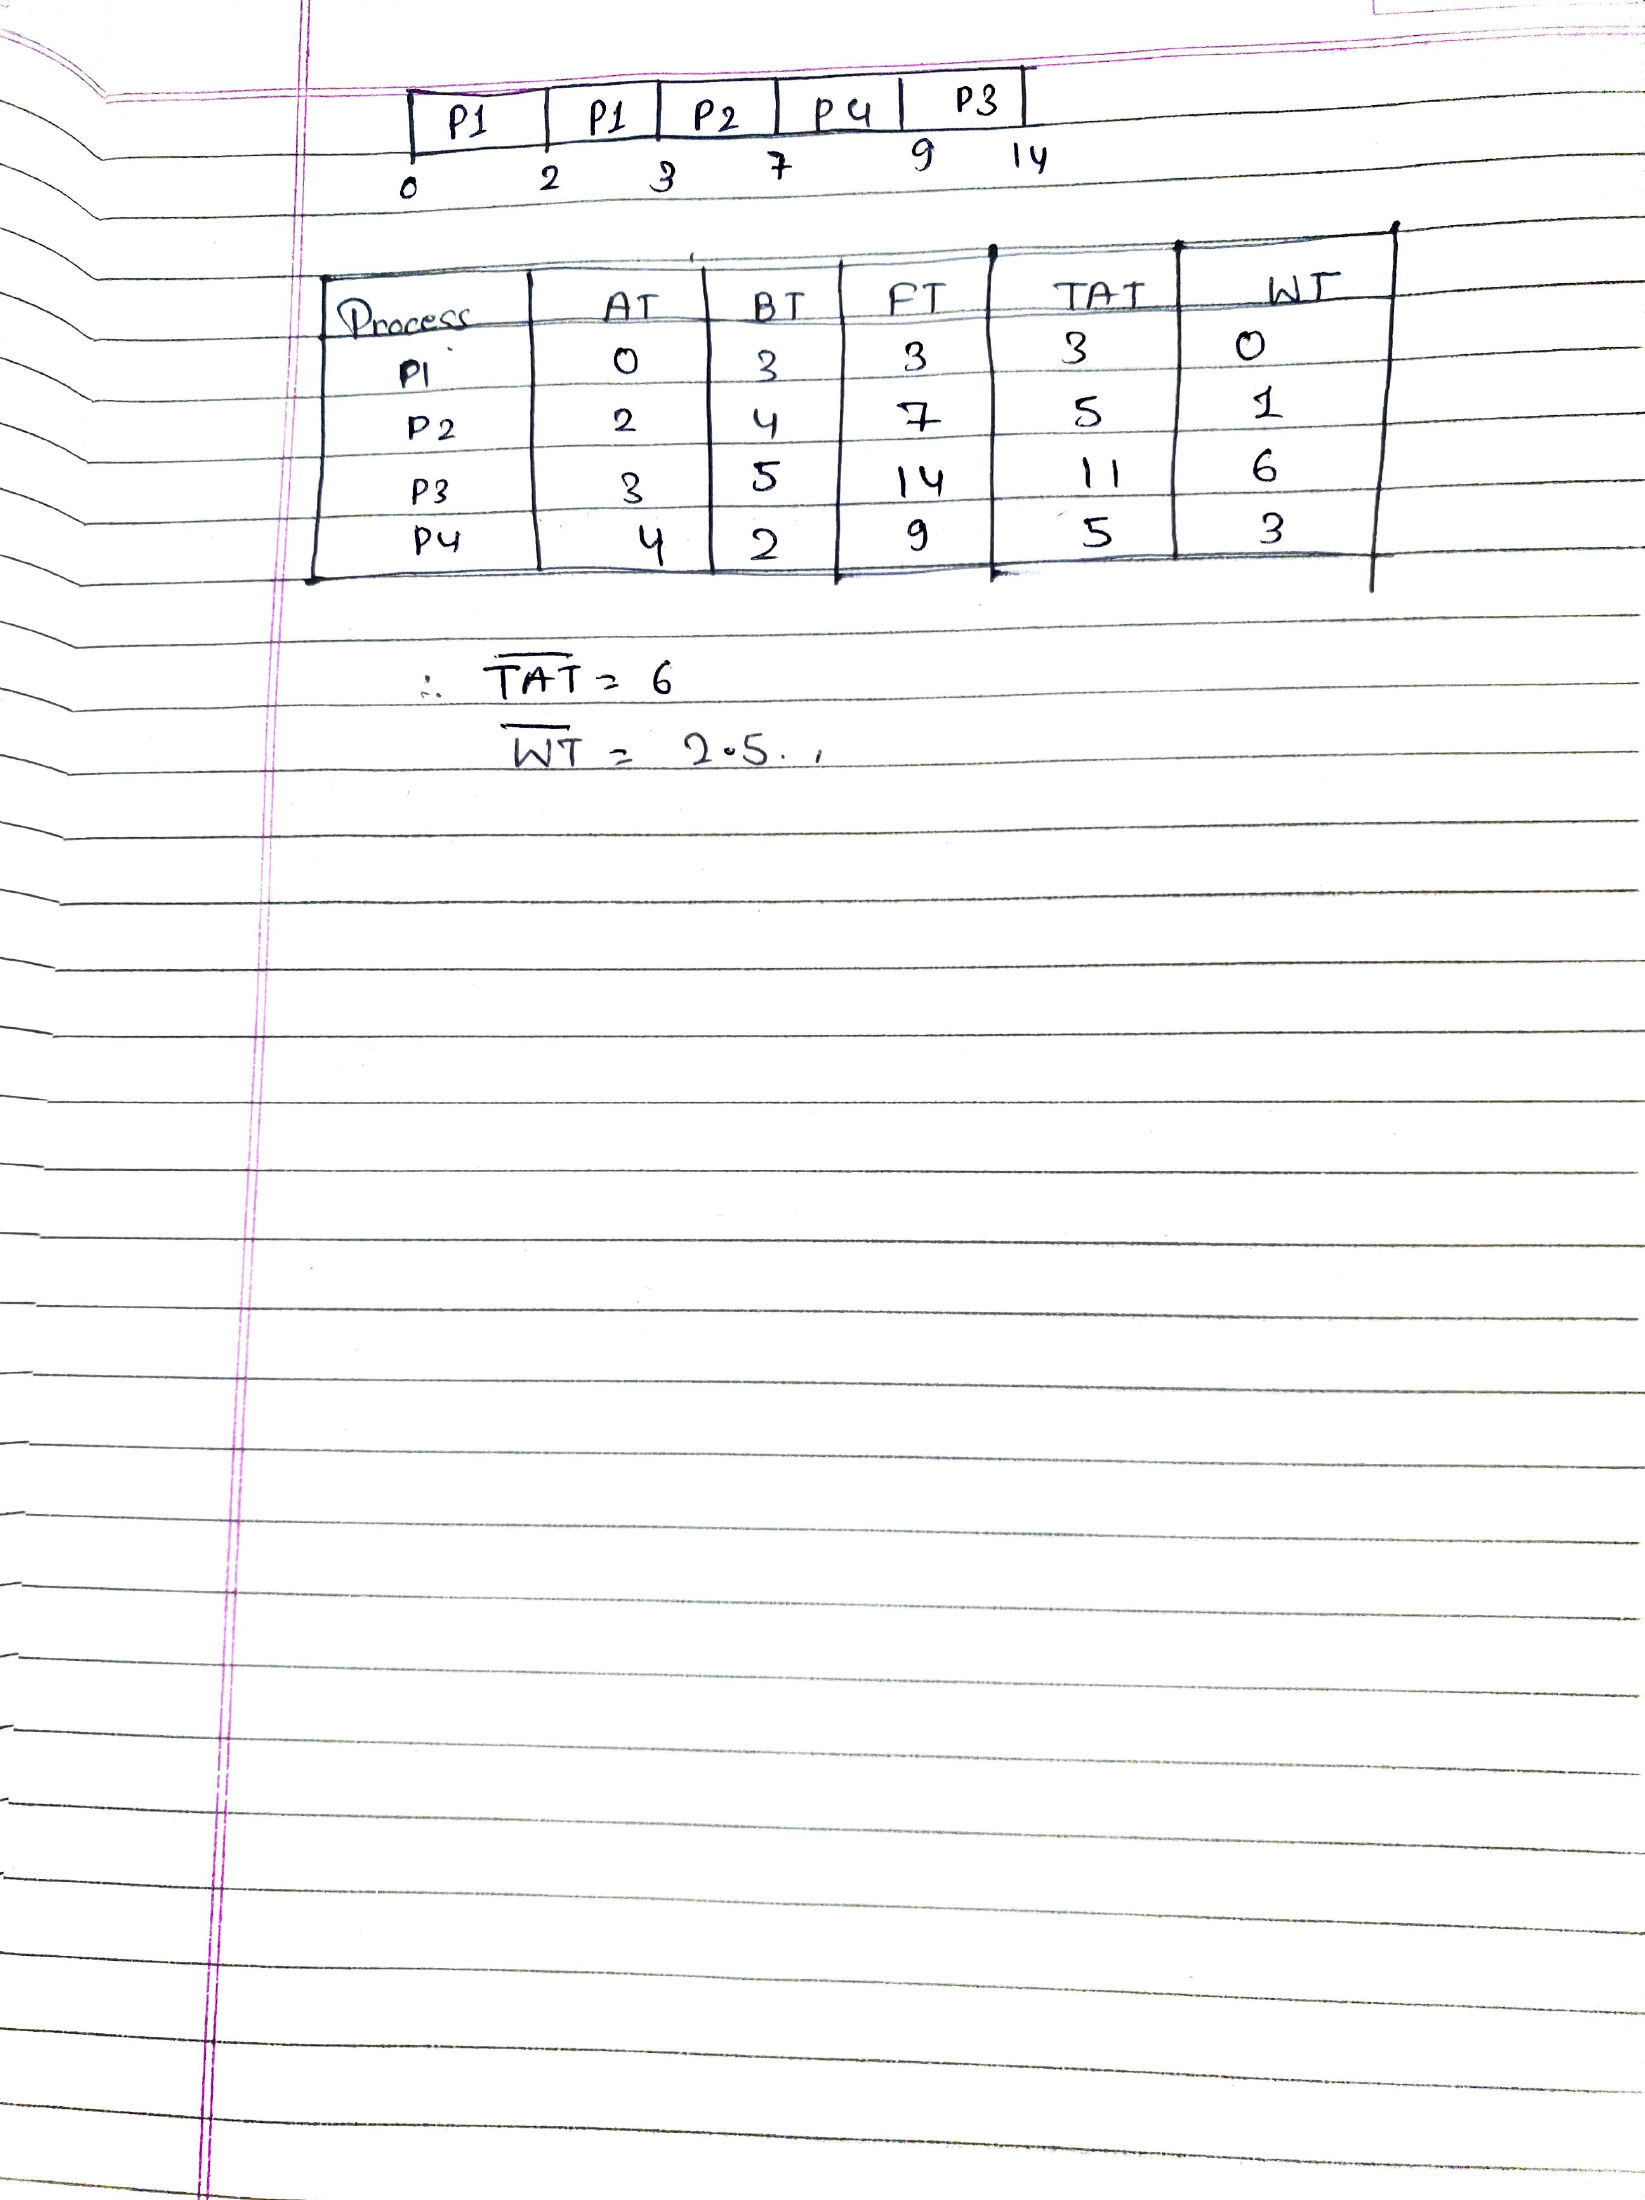 P1 P1 P2 P4 P3
0 2 3 7 9 14
Process AT BT FT TAT WT
P1 0 3 3 3 0
P2 2 4 7 5 1
P3 3 5 14 11 6
P4 4 2 9 5 3
∴ T̅A̅T̅ = 6
W̅T̅ = 2.5